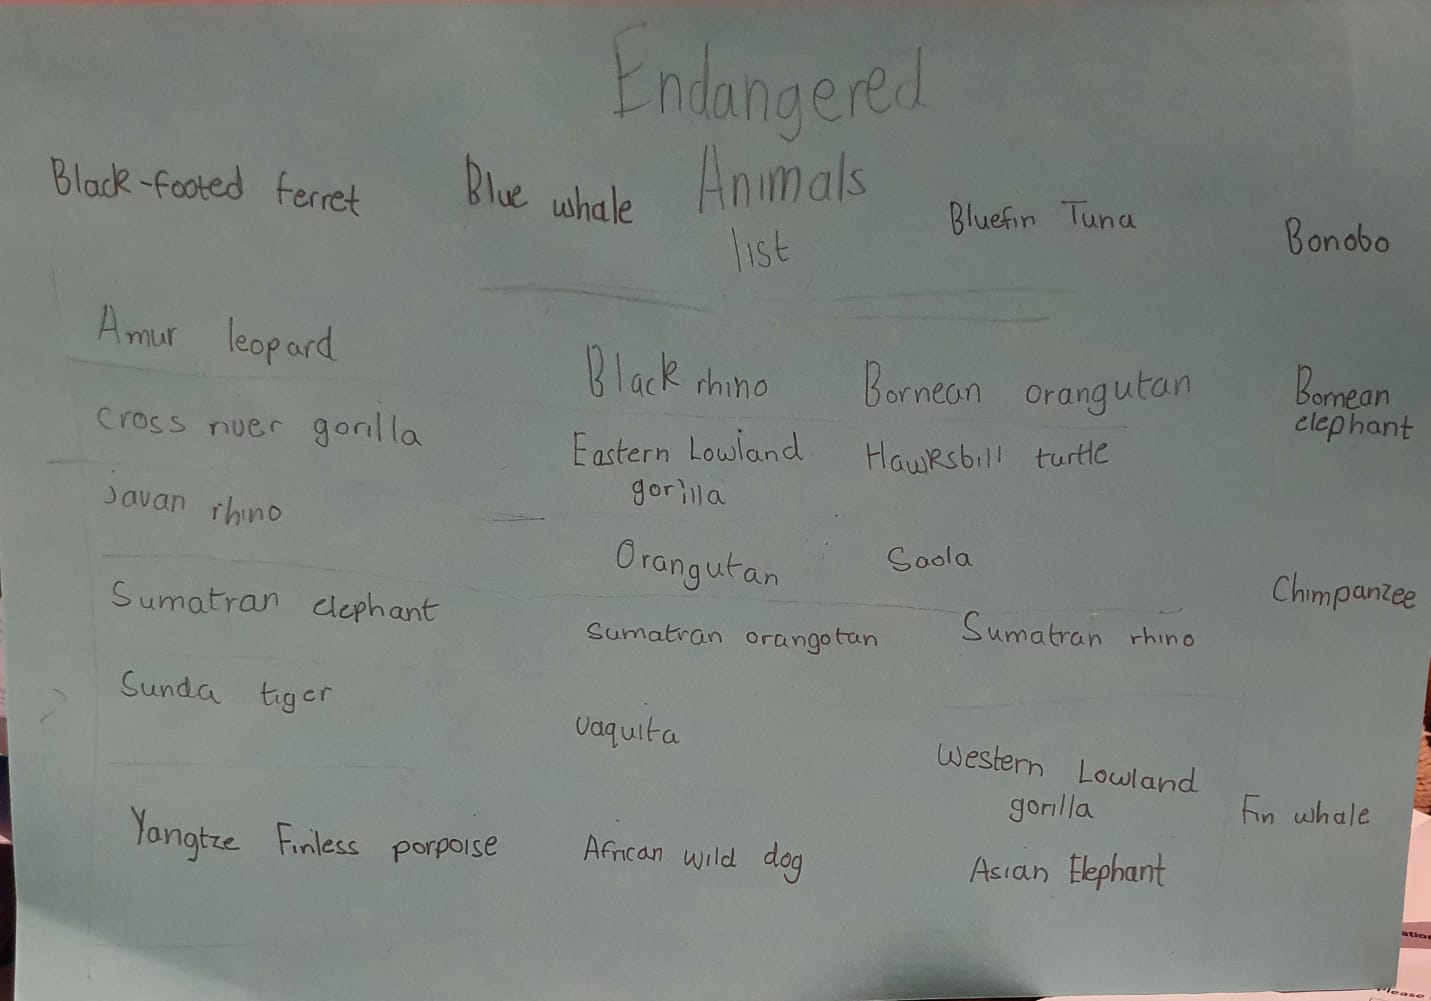 Endangered
Animals
list
Black-footed ferret
Blue whale
Bluefin Tuna
Bonobo
Amur leopard
Black rhino
Bornean orangutan
Bornean
elephant
Cross river gorilla
Eastern Lowland
gorilla
Hawksbill turtle
Javan rhino
Orangutan
Saola
Chimpanzee
Sumatran elephant
Sumatran orangotan
Sumatran rhino
Sunda tiger
Vaquita
Western Lowland
gorilla
Fin whale
Yangtze Finless porpoise
African wild dog
Asian Elephant
Please